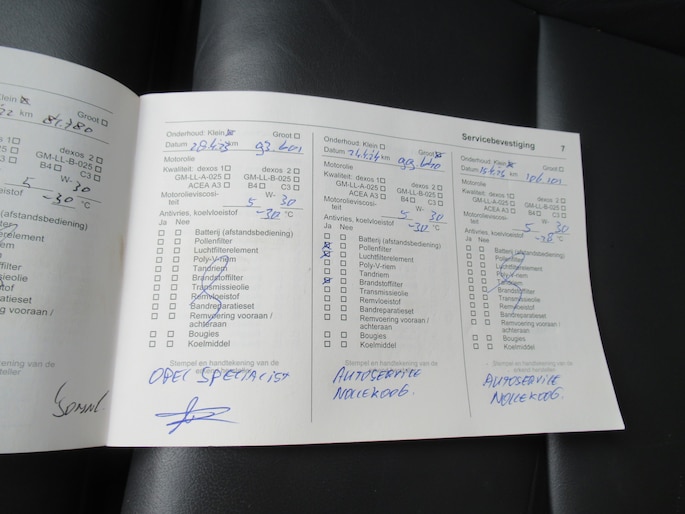 Klein
Groot
22 km 84.380
xos 1
dexos 2
-025
GM-LL-B-025
A3
B4
C3
W-
5
30
elvloeistof
-30 °C
(afstandsbediening)
filter
terelement
filter
ssieolie
eistof
aratieset
ng vooraan/
kening van de
teller
Servicebevestiging 7
Onderhoud: Klein Groot
Datum km 93.601
Motorolie
Kwaliteit: dexos 1 dexos 2
GM-LL-A-025 GM-LL-B-025
ACEA A3 B4 C3
Motorolieviscosi- W-
teit 5 30
Antivries, koelvloeistof -30 °C
Ja Nee
Batterij (afstandsbediening)
Pollenfilter
Luchtfilterelement
Poly-V-riem
Tandriem
Brandstoffilter
Transmissieolie
Remvloeistof
Bandreparatieset
Remvoering vooraan /
achteraan
Bougies
Koelmiddel
Stempel en handtekening van de
OPEL SPECIALIST
Onderhoud: Klein Groot
Datum 24.4.24 km
Motorolie
Kwaliteit: dexos 1 dexos 2
GM-LL-A-025 GM-LL-B-025
ACEA A3 B4 C3
Motorolieviscosi- W-
teit 5 30
Antivries, koelvloeistof -30 °C
Ja Nee
Batterij (afstandsbediening)
Pollenfilter
Luchtfilterelement
Poly-V-riem
Tandriem
Brandstoffilter
Transmissieolie
Remvloeistof
Bandreparatieset
Remvoering vooraan /
achteraan
Bougies
Koelmiddel
Stempel en handtekening van de
AUTOSERVICE
NOLLEKOOG.
Onderhoud: Klein Groot
Datum km 106.101
Motorolie
Kwaliteit: dexos 1 dexos 2
GM-LL-A-025 GM-LL-B-025
ACEA A3 B4 C3
Motorolieviscosi- W-
teit 5 30
Antivries, koelvloeistof °C
Ja Nee
Batterij (afstandsbediening)
Pollenfilter
Luchtfilterelement
Poly-V-riem
Tandriem
Brandstoffilter
Transmissieolie
Remvloeistof
Bandreparatieset
Remvoering vooraan /
achteraan
Bougies
Koelmiddel
Stempel en handtekening van de
AUTOSERVICE
NOLLEKOOG.